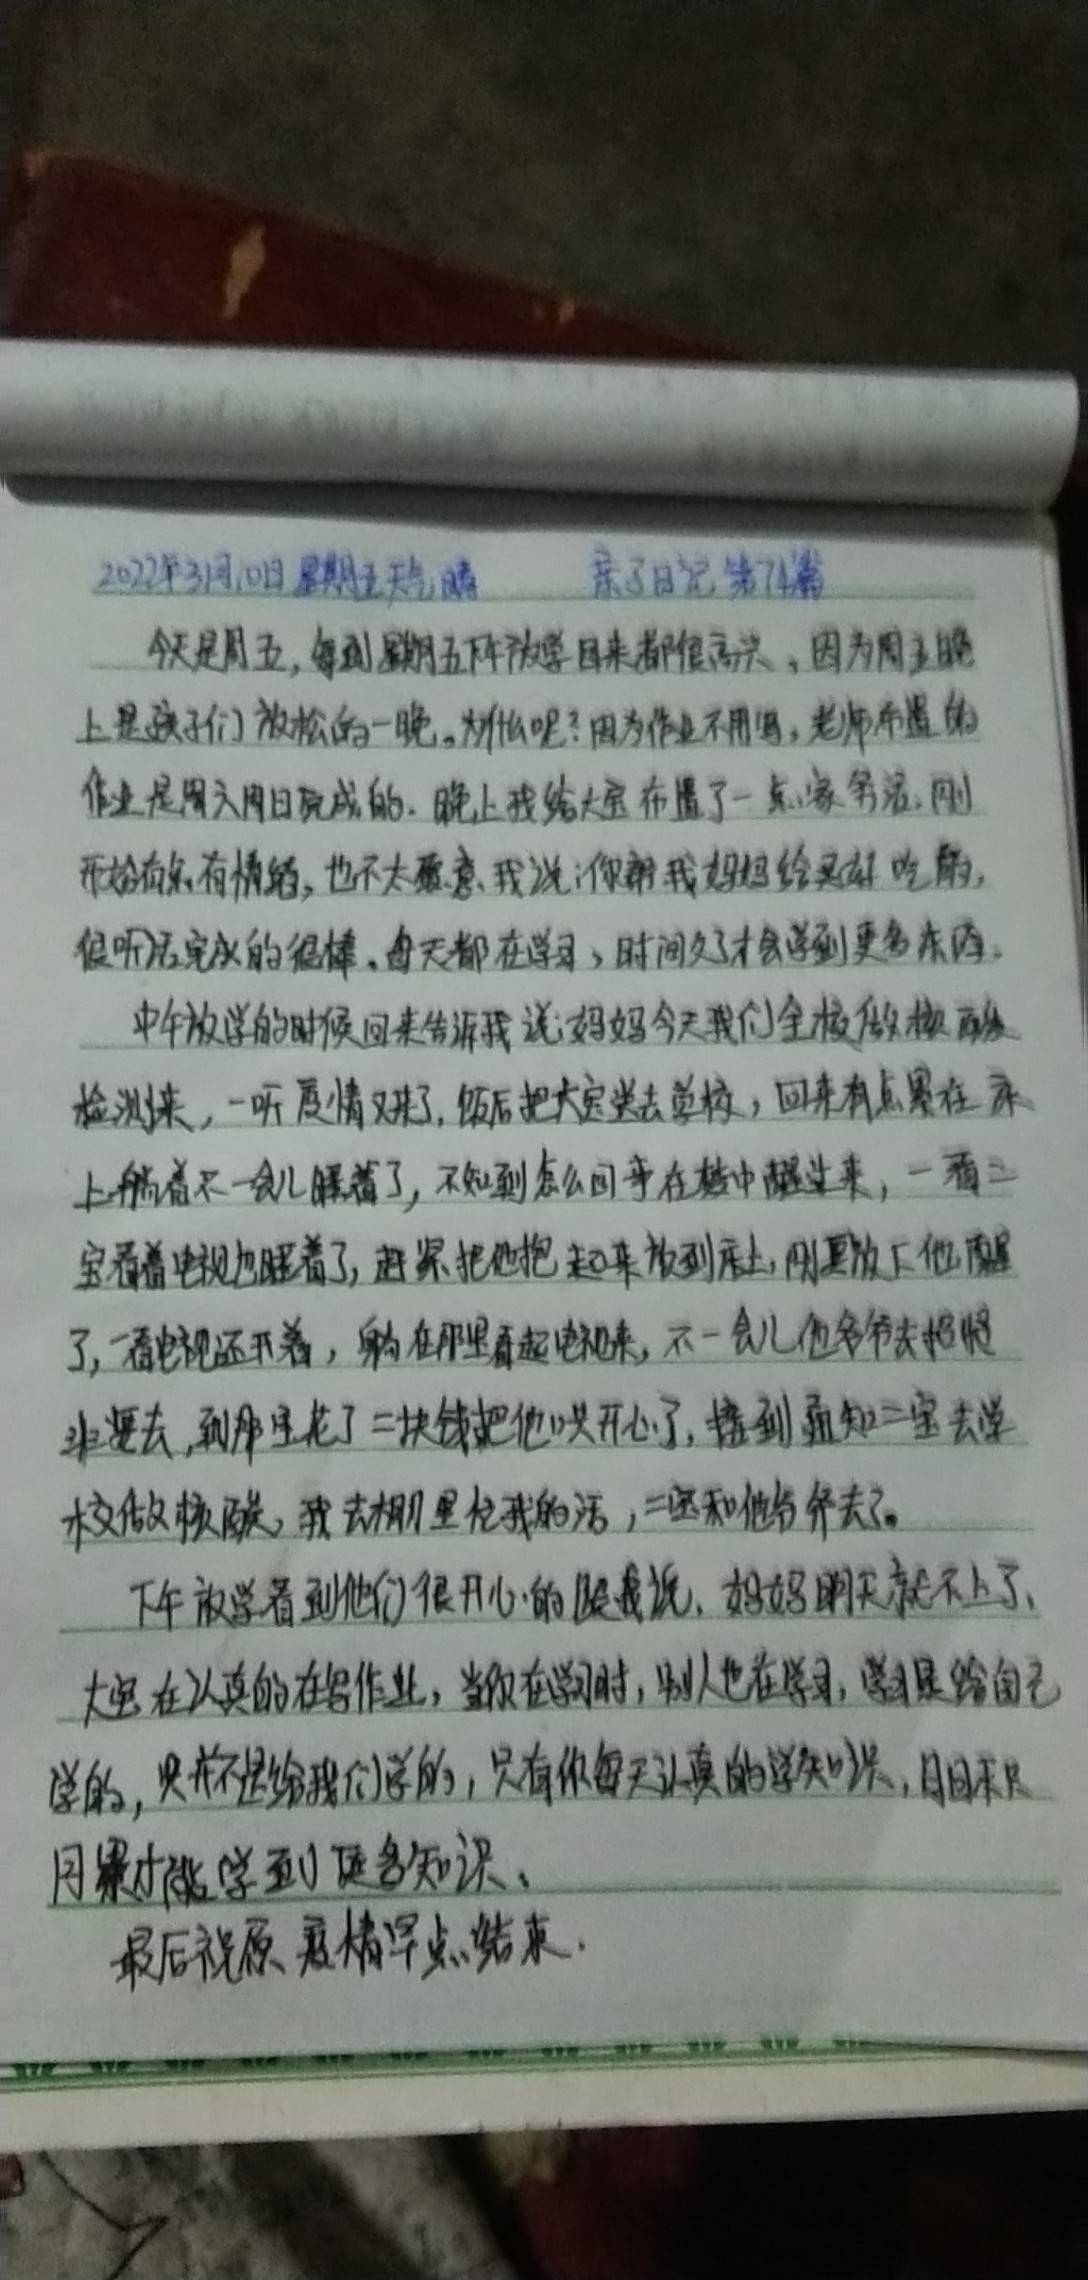 2022年3月10日 星期五 天气晴 亲子日记 第74篇
今天是周五，每到星期五下午放学回来都很高兴，因为周五晚
上是孩子们放松的一晚。为什么呢？因为作业不用写，老师布置的
作业是周六周日完成的．晚上我给大宝布置了一点家务活，刚
开始有点有情绪，也不太愿意、我说：你帮我妈妈给买好吃的，
很听话完成的很棒。每天都在学习，时间久了才会学到更多东西．
中午放学的时候回来告诉我说：妈妈今天我们全校做核酸
检测来，一听疫情又来了，饭后把大宝送去学校，回来有点累在床
上躺着不一会儿睡着了，不知到怎么回事在梦中醒过来，一看二
宝看着电视也睡着了，赶紧把他抱起来放到床上，刚要放下他醒
了，一看电视还开着，躺在那里看起电视来，不一会儿他爷爷去
非要去，到那里花了二块钱把他哄开心了，接到通知二宝去学
校做核酸，我去棚里忙我的活，二宝和他爷爷去了。
下午放学看到他们很开心的跟我说，妈妈明天就不上了、
大宝在认真的在写作业，当你在学习时，别人也在学习，学习是给自己
学的，并不是给我们学的，只有你每天认真的学知识，日日
月累才能学到更多知识、
最后祝愿疫情早点结束．